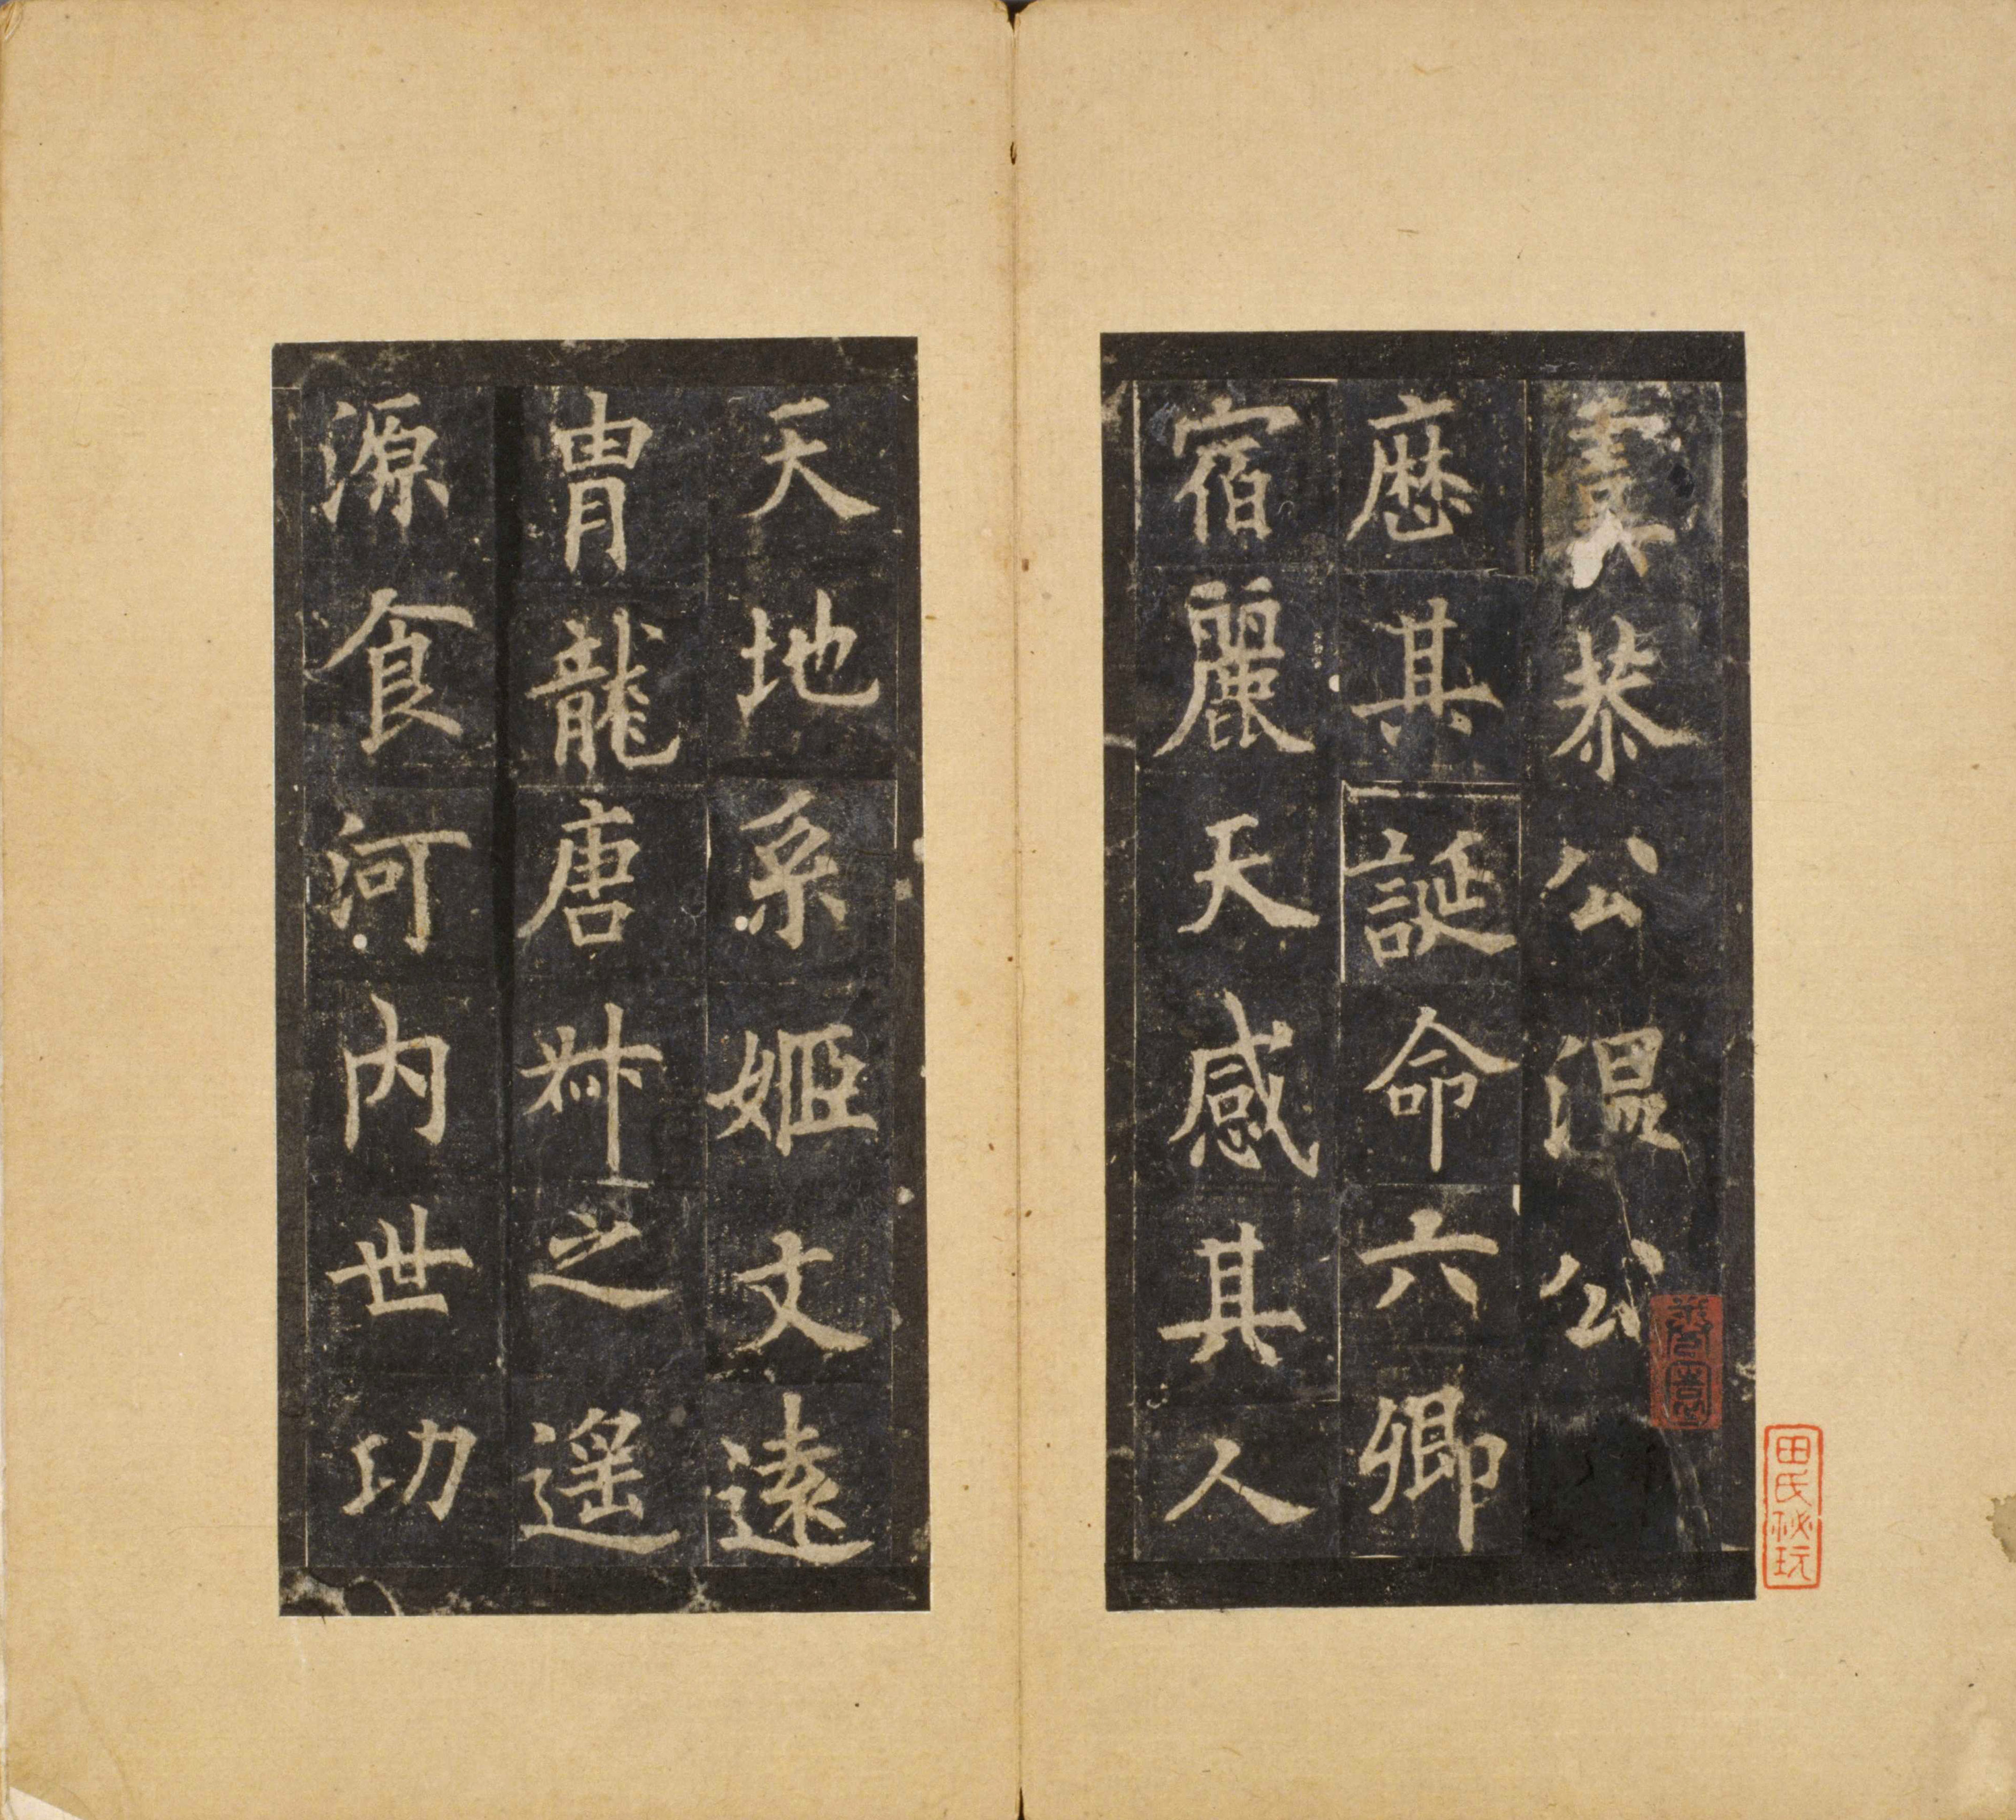 虞恭公温公
歷其誕命六卿
宿麗天感其人
天地系姬文遠
胄龍唐叔之遥
源食河内世功
田氏祕玩